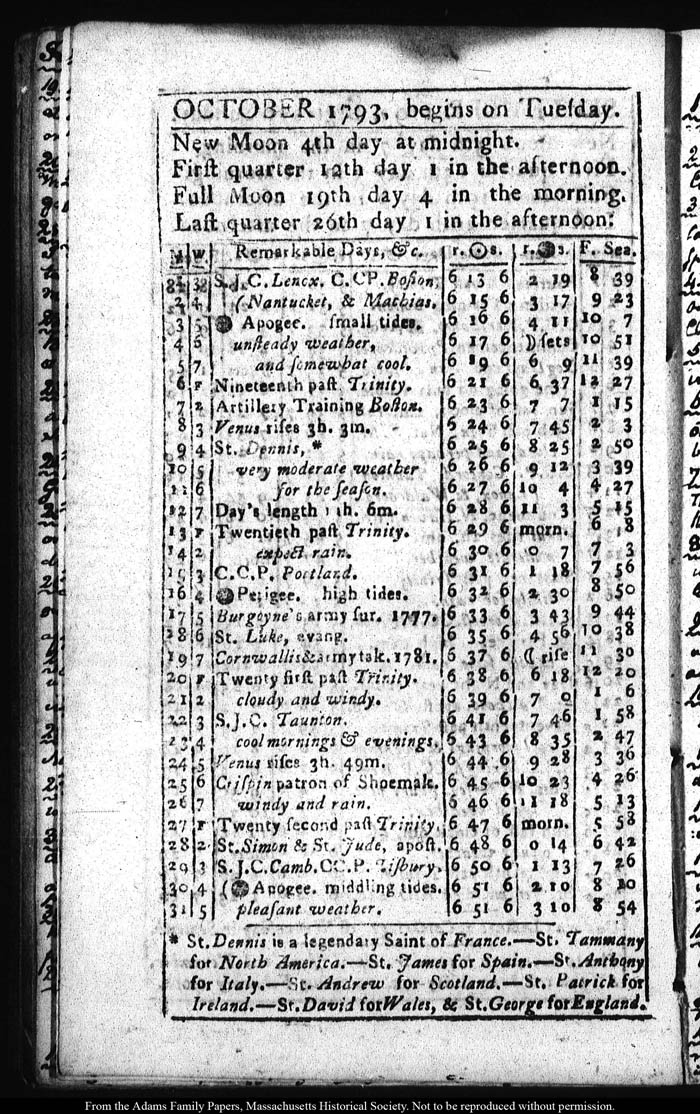 OCTOBER 1793, begins on Tueſday.
New Moon 4th day at midnight.
Firſt quarter 12th day 1 in the afternoon.
Full Moon 19th day 4 in the morning.
Laſt quarter 26th day 1 in the afternoon.
M. W. Remarkable Days, &c. r. ☉ s. r. s. F. Sea.
S.J.C. Lenox. C.CP. Boſton, 6 13 6 2 19 8 39
2 4 (Nantucket, & Machias. 6 15 6 3 17 9 23
3 5 Apogee. ſmall tides. 6 16 6 4 11 10 7
4 6 unſteady weather, 6 17 6 ☽ ſets 10 51
5 7 and ſomewhat cool. 6 19 6 6 9 11 39
6 F Nineteenth paſt Trinity. 6 21 6 6 37 12 27
7 2 Artillery Training Boſton. 6 23 6 7 7 1 15
8 3 Venus riſes 3h. 3m. 6 24 6 7 45 2 3
9 4 St. Dennis, * 6 25 6 8 25 2 50
10 5 very moderate weather 6 26 6 9 12 3 39
11 6 for the ſeaſon. 6 27 6 10 4 4 27
12 7 Day's length 11h. 6m. 6 28 6 11 3 5 15
13 F Twentieth paſt Trinity. 6 29 6 morn. 6 8
14 2 expect rain. 6 30 6 0 7 7 3
15 3 C.C.P. Portland. 6 31 6 1 18 7 56
16 4 Perigee. high tides. 6 32 6 2 30 8 50
17 5 Burgoyne's army ſur. 1777. 6 33 6 3 43 9 44
18 6 St. Luke, evang. 6 35 6 4 56 10 38
19 7 Cornwallis&army tak. 1781. 6 37 6 ☾ riſe 11 30
20 F Twenty firſt paſt Trinity. 6 38 6 6 18 12 20
21 2 cloudy and windy. 6 39 6 7 0 1 6
22 3 S.J.C. Taunton. 6 41 6 7 46 1 58
23 4 cool mornings & evenings. 6 43 6 8 35 2 47
24 5 Venus riſes 3h. 49m. 6 44 6 9 28 3 36
25 6 Criſpin patron of Shoemak. 6 45 6 10 23 4 26
26 7 windy and rain. 6 46 6 11 18 5 13
27 F Twenty ſecond paſt Trinity. 6 47 6 morn. 5 58
28 2 St. Simon & St. Jude, apoſt. 6 48 6 0 14 6 42
29 3 S.J.C. Camb. C.C.P. Tiſbury. 6 50 6 1 13 7 26
30 4 ( Apogee. middling tides. 6 51 6 2 10 8 10
31 5 pleaſant weather. 6 51 6 3 10 8 54
* St. Dennis is a legendary Saint of France.—St. Tammany
for North America.—St. James for Spain.—St. Anthony
for Italy.—St. Andrew for Scotland.—St. Patrick for
Ireland.—St. David for Wales, & St. George for England.
From the Adams Family Papers, Massachusetts Historical Society. Not to be reproduced without permission.